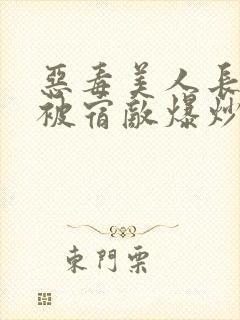 惡毒美人長
被宿敵爆炒
東門栗